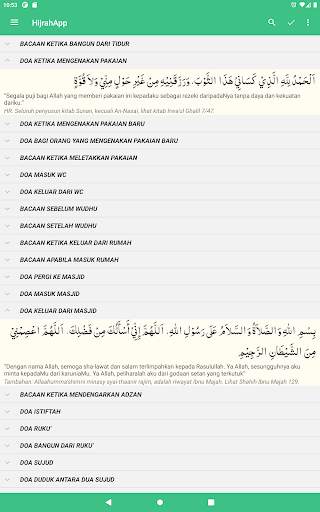 10:53
HijrahApp
BACAAN KETIKA BANGUN DARI TIDUR
DOA KETIKA MENGENAKAN PAKAIAN
اَلْحَمْدُ لِلَّهِ الَّذِيْ كَسَانِيْ هَذَا الثَّوْبَ، وَرَزَقَنِيْهِ مِنْ غَيْرِ حَوْلٍ مِنِّيْ وَلاَ قُوَّةٍ
"Segala puji bagi Allah yang memberi pakaian ini kepadaku sebagai rezeki daripadaNya tanpa daya dan kekuatan
dariku."
HR. Seluruh penyusun kitab Sunan, kecuali An-Nasai, lihat kitab Irwa'ul Ghalil 7/47.
DOA KETIKA MENGENAKAN PAKAIAN BARU
DOA BAGI ORANG YANG MENGENAKAN PAKAIAN BARU
BACAAN KETIKA MELETAKKAN PAKAIAN
DOA MASUK WC
DOA KELUAR DARI WC
BACAAN SEBELUM WUDHU
BACAAN SETELAH WUDHU
BACAAN KETIKA KELUAR DARI RUMAH
BACAAN APABILA MASUK RUMAH
DOA PERGI KE MASJID
DOA MASUK MASJID
DOA KELUAR DARI MASJID
بِسْمِ اللهِ وَالصَّلاَةُ وَالسَّلاَمُ عَلَى رَسُوْلِ اللهِ، اَللَّهُمَّ إِنِّيْ أَسْأَلُكَ مِنْ فَضْلِكَ، اَللَّهُمَّ اعْصِمْنِيْ
مِنَ الشَّيْطَانِ الرَّجِيْمِ
"Dengan nama Allah, semoga sha-lawat dan salam terlimpahkan kepada Rasulullah. Ya Allah, sesungguhnya aku
minta kepadaMu dari karuniaMu. Ya Allah, peliharalah aku dari godaan setan yang terkutuk"
Tambahan: Allaahumma'shimni minasy syai-thaanir rajim, adalah riwayat Ibnu Majah. Lihat Shahih Ibnu Majah 129.
BACAAN KETIKA MENDENGARKAN ADZAN
DOA ISTIFTAH
DOA RUKU'
DOA BANGUN DARI RUKU'
DOA SUJUD
DOA DUDUK ANTARA DUA SUJUD